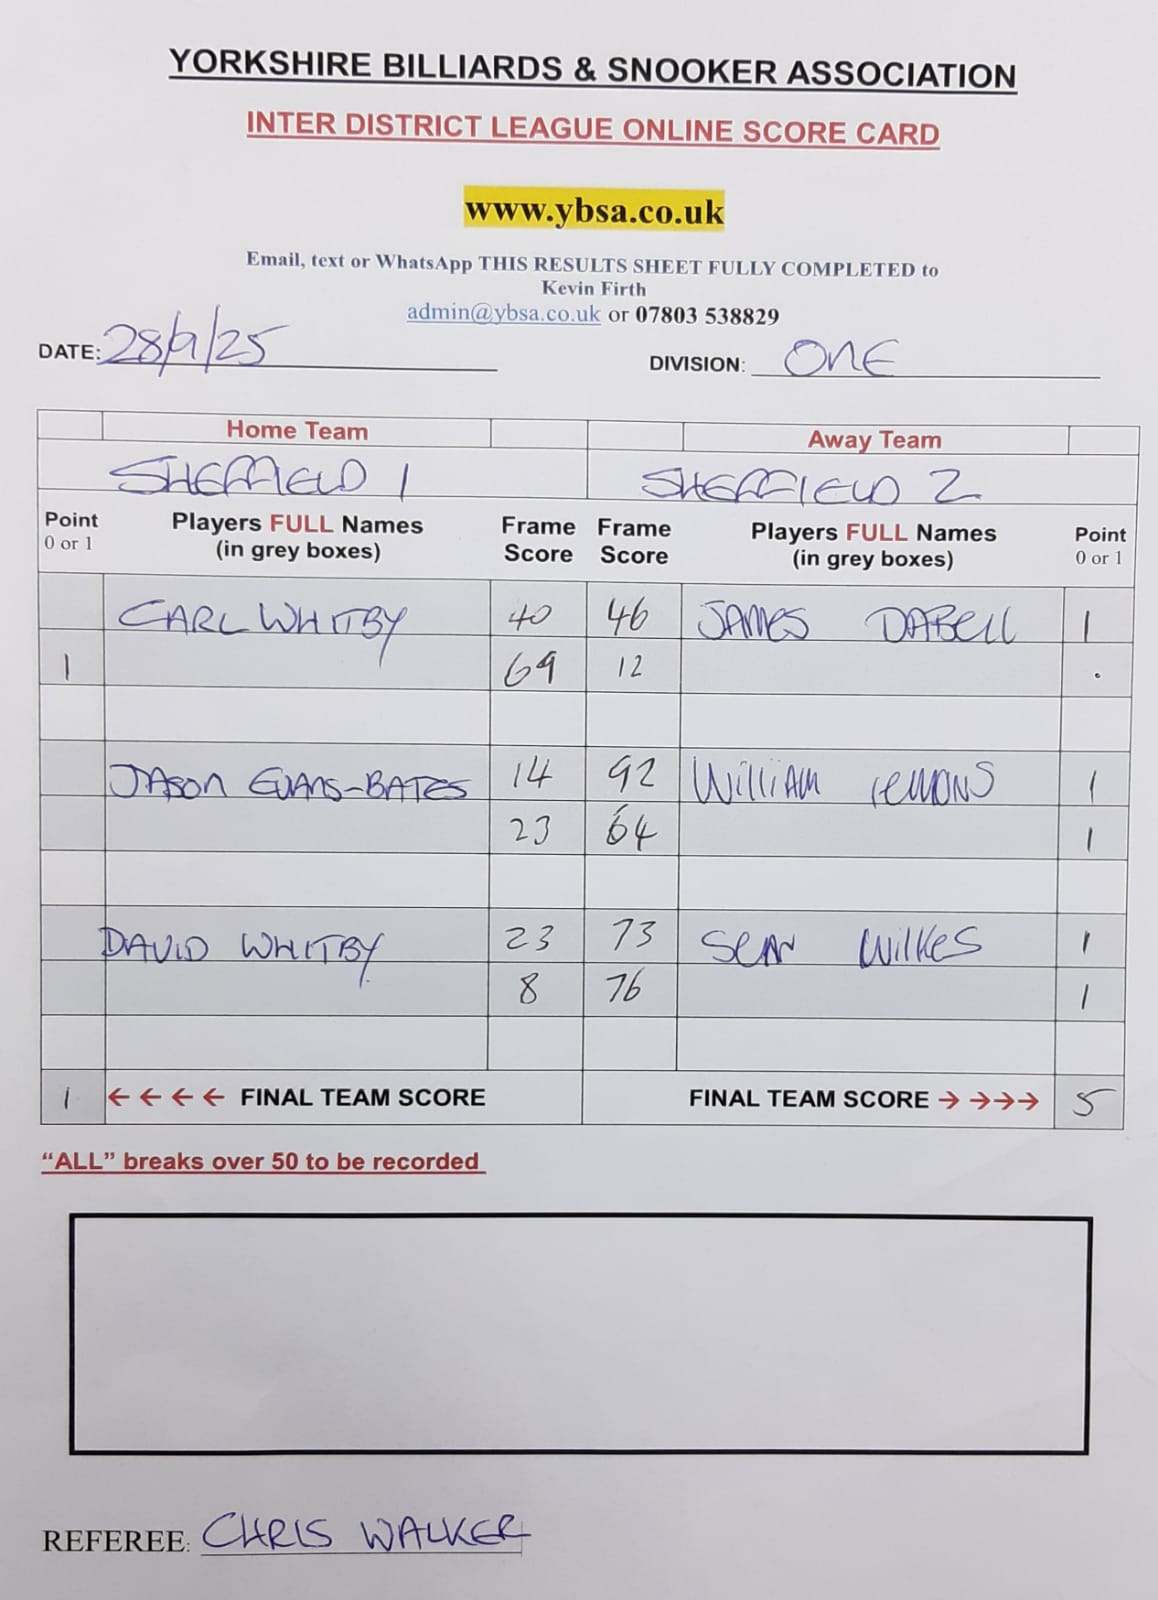 YORKSHIRE BILLIARDS & SNOOKER ASSOCIATION
INTER DISTRICT LEAGUE ONLINE SCORE CARD
www.ybsa.co.uk
Email, text or WhatsApp THIS RESULTS SHEET FULLY COMPLETED to
Kevin Firth
admin@ybsa.co.uk or 07803 538829
DATE: 28/9/25 DIVISION: ONE
Home Team Away Team
SHEFFIELD 1 SHEFFIELD 2
Point Players FULL Names Frame Frame Players FULL Names Point
0 or 1 (in grey boxes) Score Score (in grey boxes) 0 or 1
CARL WHITBY 40 46 JAMES DABELL 1
1 69 12 .
JASON EVANS-BATES 14 92 WILLIAM LEMONS 1
23 64 1
DAVID WHITBY 23 73 SEAN WILKES 1
8 76 1
1 ← ← ← ← FINAL TEAM SCORE FINAL TEAM SCORE → →→→ 5
“ALL” breaks over 50 to be recorded
REFEREE: CHRIS WALKER